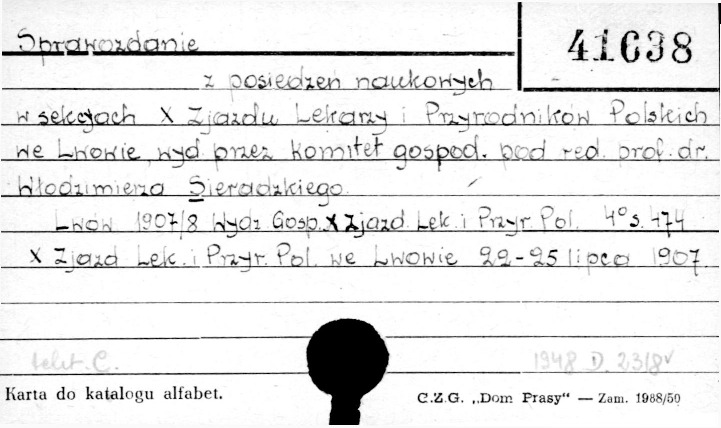 Sprawozdanie
41638
z posiedzeń naukowych
w sekcjach X Zjazdu Lekarzy i Przyrodników Polskich
we Lwowie, wyd. przez Komitet gospod. pod red. prof. dr.
Włodzimierza Sieradzkiego.
Lwów 1907/8 Wydz Gosp. X Zjazd. Lek. i Przyr. Pol. 4° s. 474
X Zjazd Lek. i Przyr. Pol. we Lwowie 22-25 lipca 1907.
C.
1948 D. 2318
Karta do katalogu alfabet.
C.Z.G. „Dom Prasy” — Zam. 1988/50